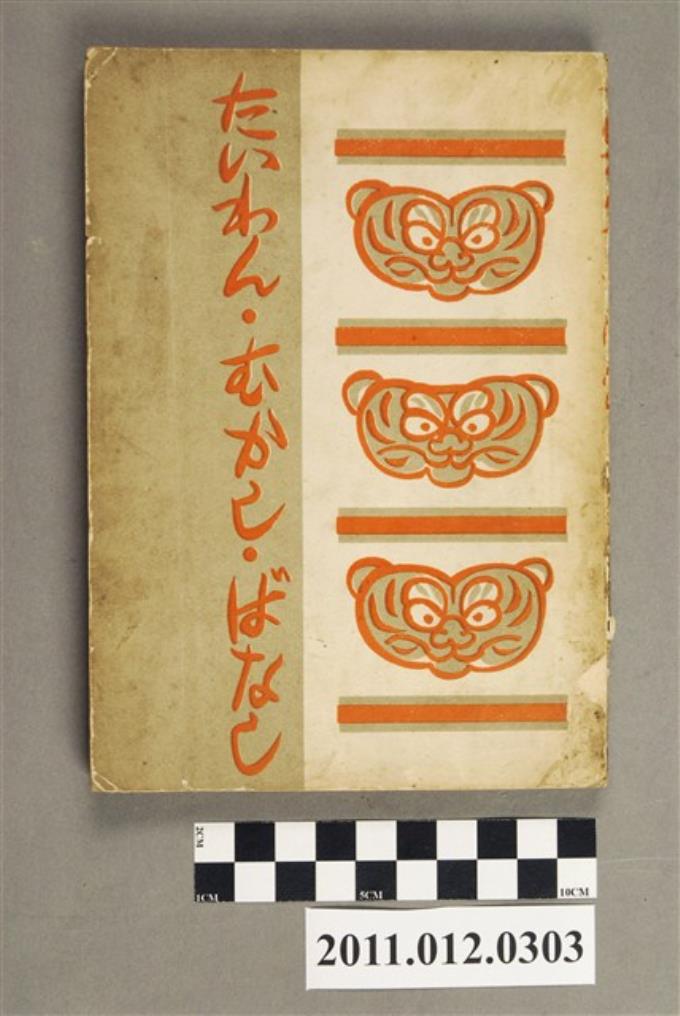 たいわん・むかし・ばなし
2CM
1CM
5CM
10CM
2011.012.0303